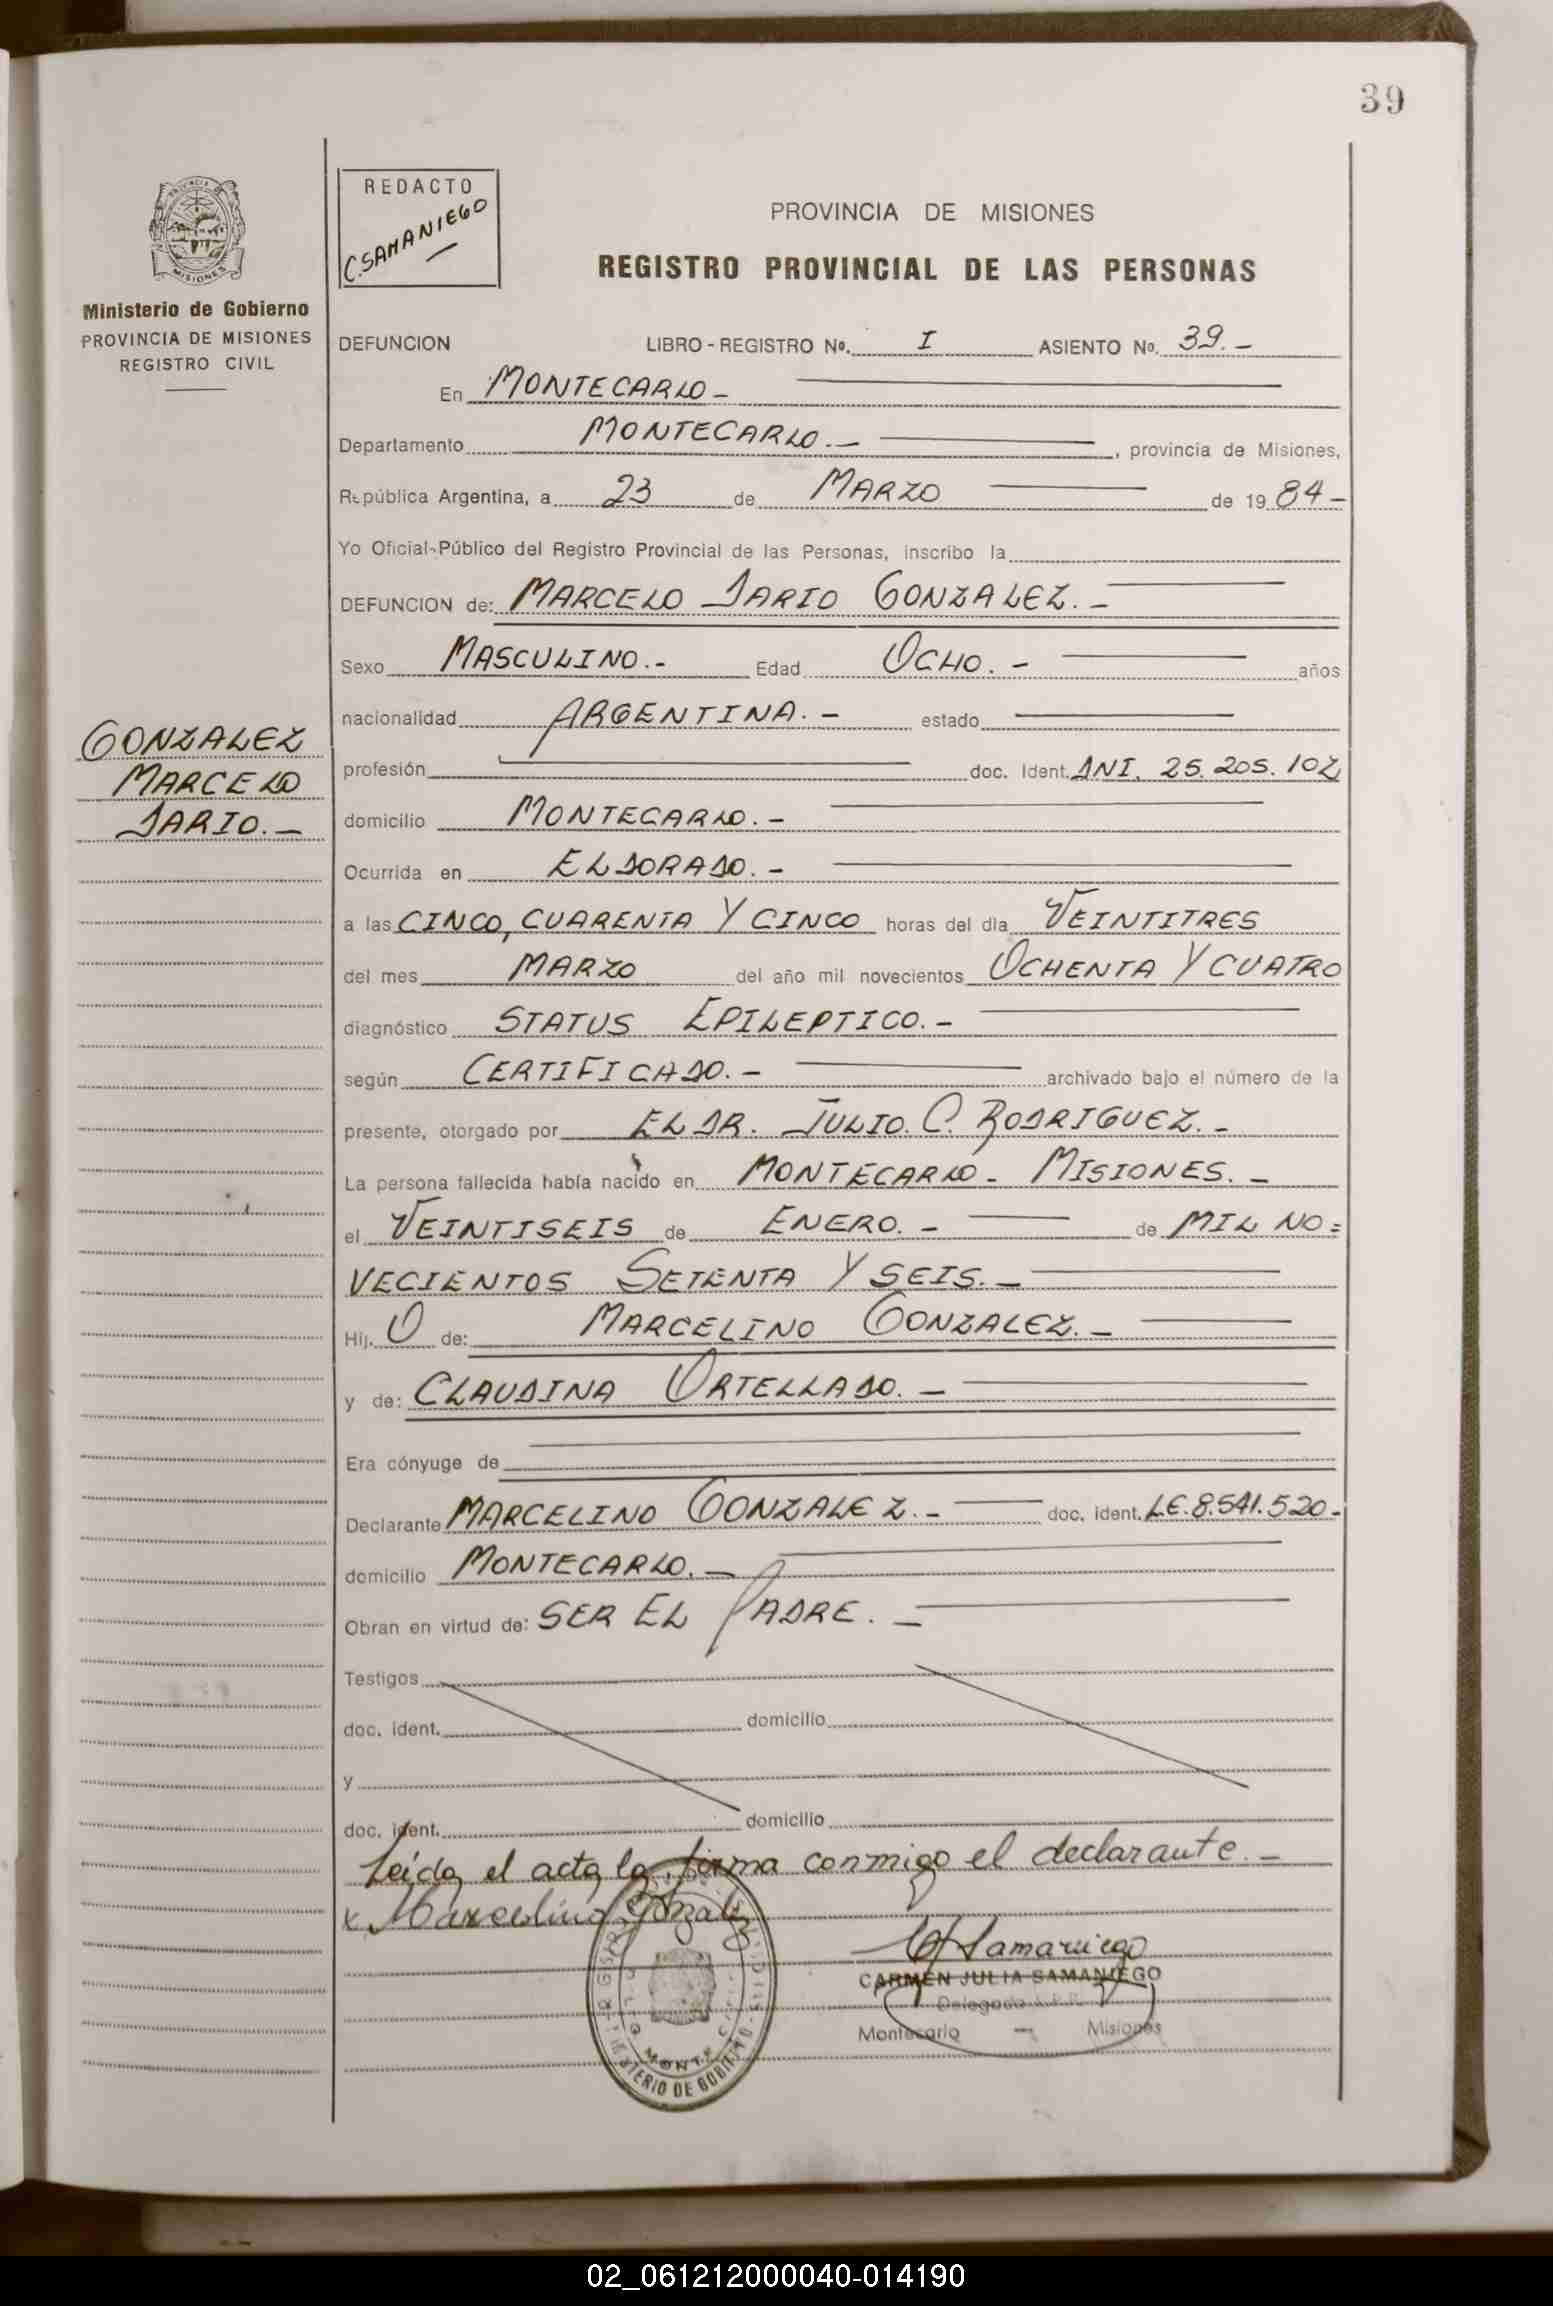 39
REDACTO
C. SAMANIEGO
PROVINCIA DE MISIONES
REGISTRO PROVINCIAL DE LAS PERSONAS
PROVINCIA DE
MISIONES
Ministerio de Gobierno
PROVINCIA DE MISIONES
REGISTRO CIVIL
DEFUNCION LIBRO - REGISTRO Nº. I ASIENTO Nº. 39.-
En MONTECARLO -
Departamento MONTECARLO.- , provincia de Misiones,
República Argentina, a 23 de MARZO de 19 84 -
Yo Oficial Público del Registro Provincial de las Personas, inscribo la
DEFUNCION de: MARCELO DARIO GONZALEZ. -
Sexo MASCULINO.- Edad OCHO. - años
nacionalidad ARGENTINA. - estado
GONZALEZ
MARCELO
DARIO. -
profesión doc. Ident. DNI. 25.205.102
domicilio MONTECARLO. -
Ocurrida en ELDORADO. -
a las CINCO, CUARENTA Y CINCO horas del día VEINTITRES
del mes MARZO del año mil novecientos OCHENTA Y CUATRO
diagnóstico STATUS EPILEPTICO. -
según CERTIFICADO. - archivado bajo el número de la
presente, otorgado por EL DR. JULIO. C. RODRIGUEZ. -
La persona fallecida había nacido en MONTECARLO - MISIONES. -
el VEINTISEIS de ENERO. - de MIL NO=
VECIENTOS SETENTA Y SEIS. -
Hij. O de: MARCELINO GONZALEZ. -
y de: CLAUDINA ORTELLADO. -
Era cónyuge de
Declarante MARCELINO GONZALEZ. - doc. ident. L.E. 8.541.520 -
domicilio MONTECARLO. -
Obran en virtud de: SER EL PADRE. -
Testigos
doc. ident. domicilio
y
doc. ident. domicilio
Leída el acta la firma conmigo el declarante. -
x Marcelino Gonzalez
CJSamaniego
CARMEN JULIA SAMANIEGO
Delegada
Montecarlo - Misiones
MINISTERIO DE GOBIERNO
MONTE
02_061212000040-014190